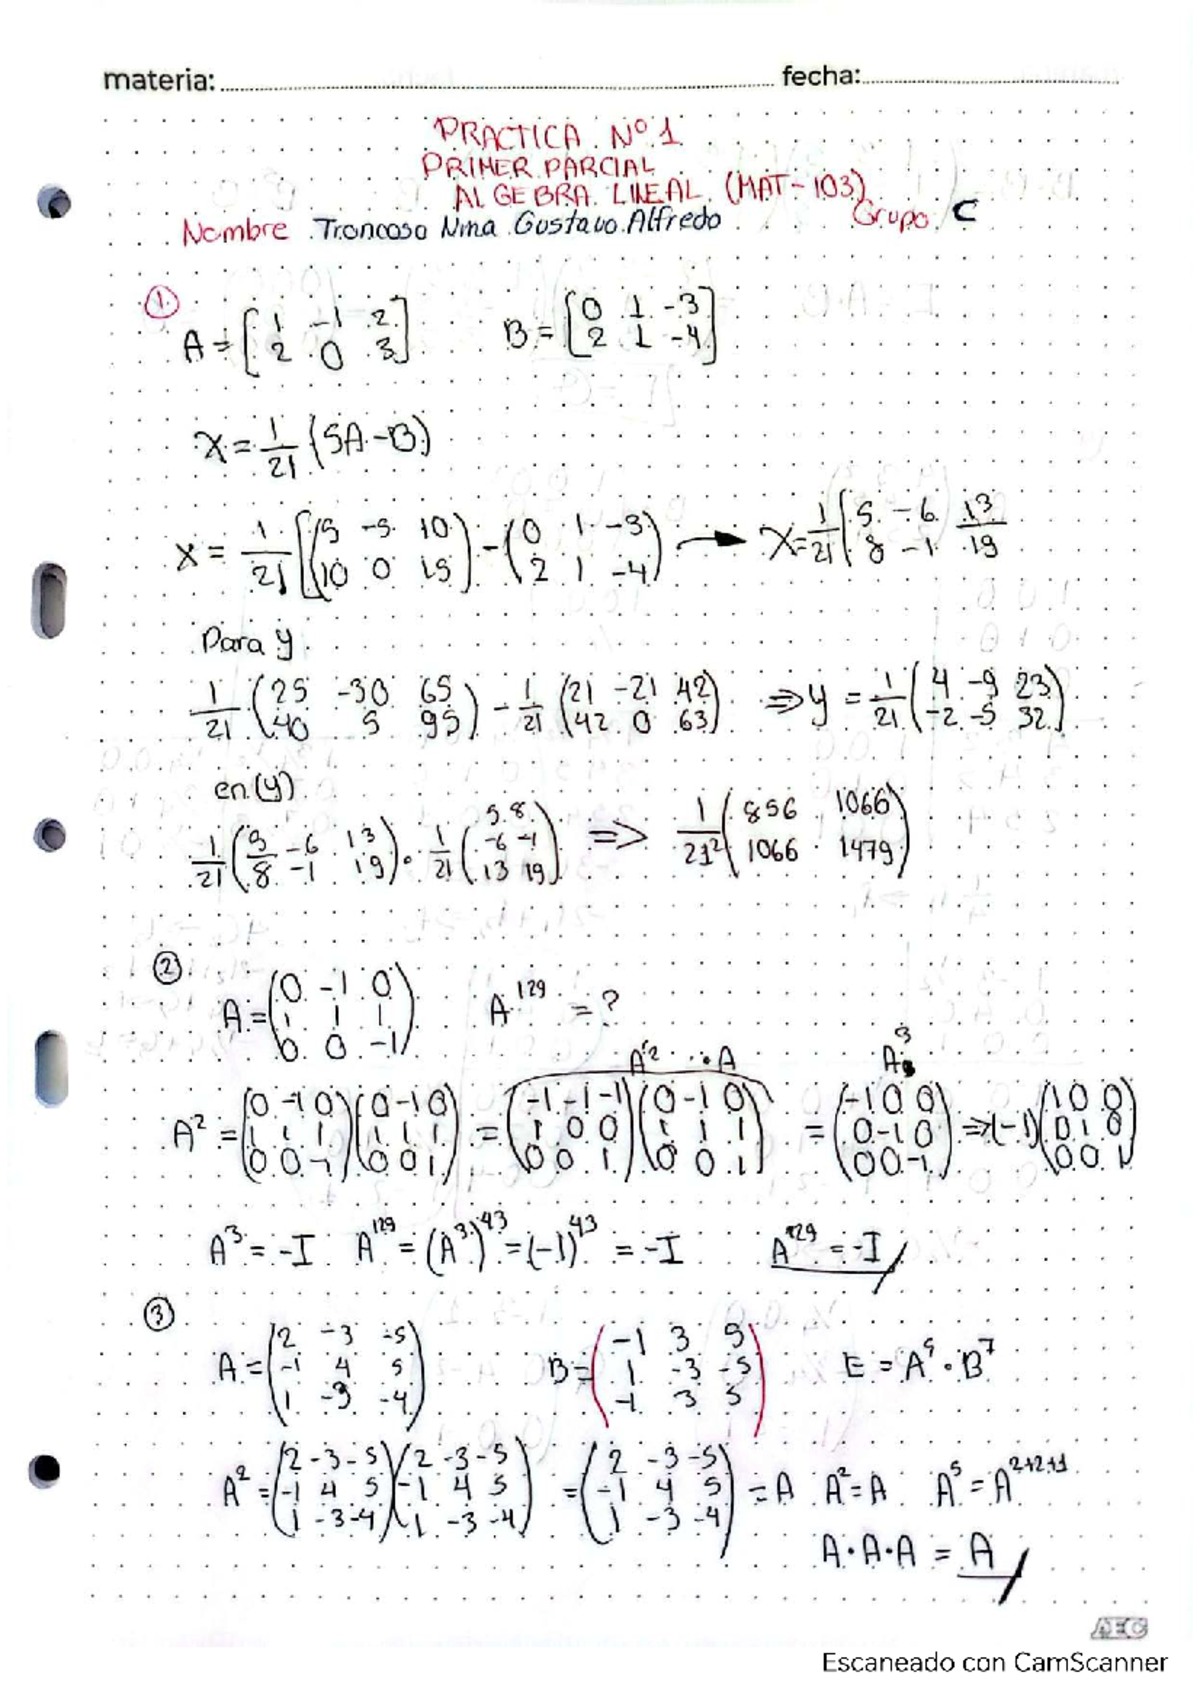 materia: fecha:
PRACTICA Nº 1
PRIMER PARCIAL
ALGEBRA LINEAL (MAT-103)
Nombre Troncoso Nina Gustavo Alfredo Grupo C
①
A = [1 -1 2; 2 0 3] B = [0 1 -3; 2 1 -4]
X = 1/21 (5A - B)
X = 1/21 [(5 -5 10; 10 0 15) - (0 1 -3; 2 1 -4) → X = 1/21 (5 -6 13; 8 -1 19
Para y
1/21 (25 -30 65; 40 5 95) - 1/21 (21 -21 42; 42 0 63) ⇒ y = 1/21 (4 -9 23; -2 -5 32)
en (y)
1/21 (5 -6 13; 8 -1 19) • 1/21 (5 8; -6 -1; 13 19) ⇒ 1/21² (856 1066; 1066 1479)
②
A = (0 -1 0; 1 1 1; 0 0 -1) A¹²⁹ = ?
A² · A A³
A² = (0 -1 0; 1 1 1; 0 0 -1)(0 -1 0; 1 1 1; 0 0 1) = (-1 -1 -1; 1 0 0; 0 0 1)(0 -1 0; 1 1 1; 0 0 1) = (-1 0 0; 0 -1 0; 0 0 -1) ⇒ (-1)(1 0 0; 0 1 0; 0 0 1)
A³ = -I A¹²⁹ = (A³)⁴³ = (-1)⁴³ = -I A¹²⁹ = -I
③
A = (2 -3 -5; -1 4 5; 1 -3 -4) B = (-1 3 5; 1 -3 -5; -1 3 5) E = A⁵ · B⁷
A² = (2 -3 -5; -1 4 5; 1 -3 -4)(2 -3 -5; -1 4 5; 1 -3 -4) = (2 -3 -5; -1 4 5; 1 -3 -4) = A A² = A A⁵ = A²⁺²⁺¹
A·A·A = A
AEC
Escaneado con CamScanner